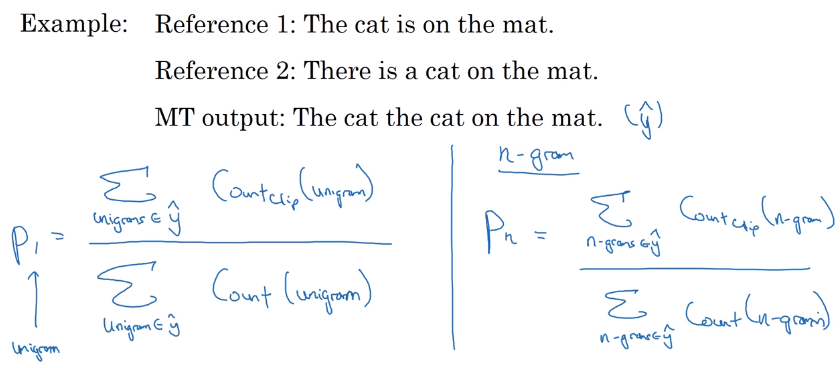 Example: Reference 1: The cat is on the mat.
Reference 2: There is a cat on the mat.
MT output: The cat the cat on the mat. (ŷ)
P₁ = Σ unigrams ∈ ŷ Count clip (unigram)
Σ unigram ∈ ŷ Count (unigram)
unigram
n-gram
Pₙ = Σ n-grams ∈ ŷ Count clip (n-gram)
Σ n-grams ∈ ŷ Count (n-gram)